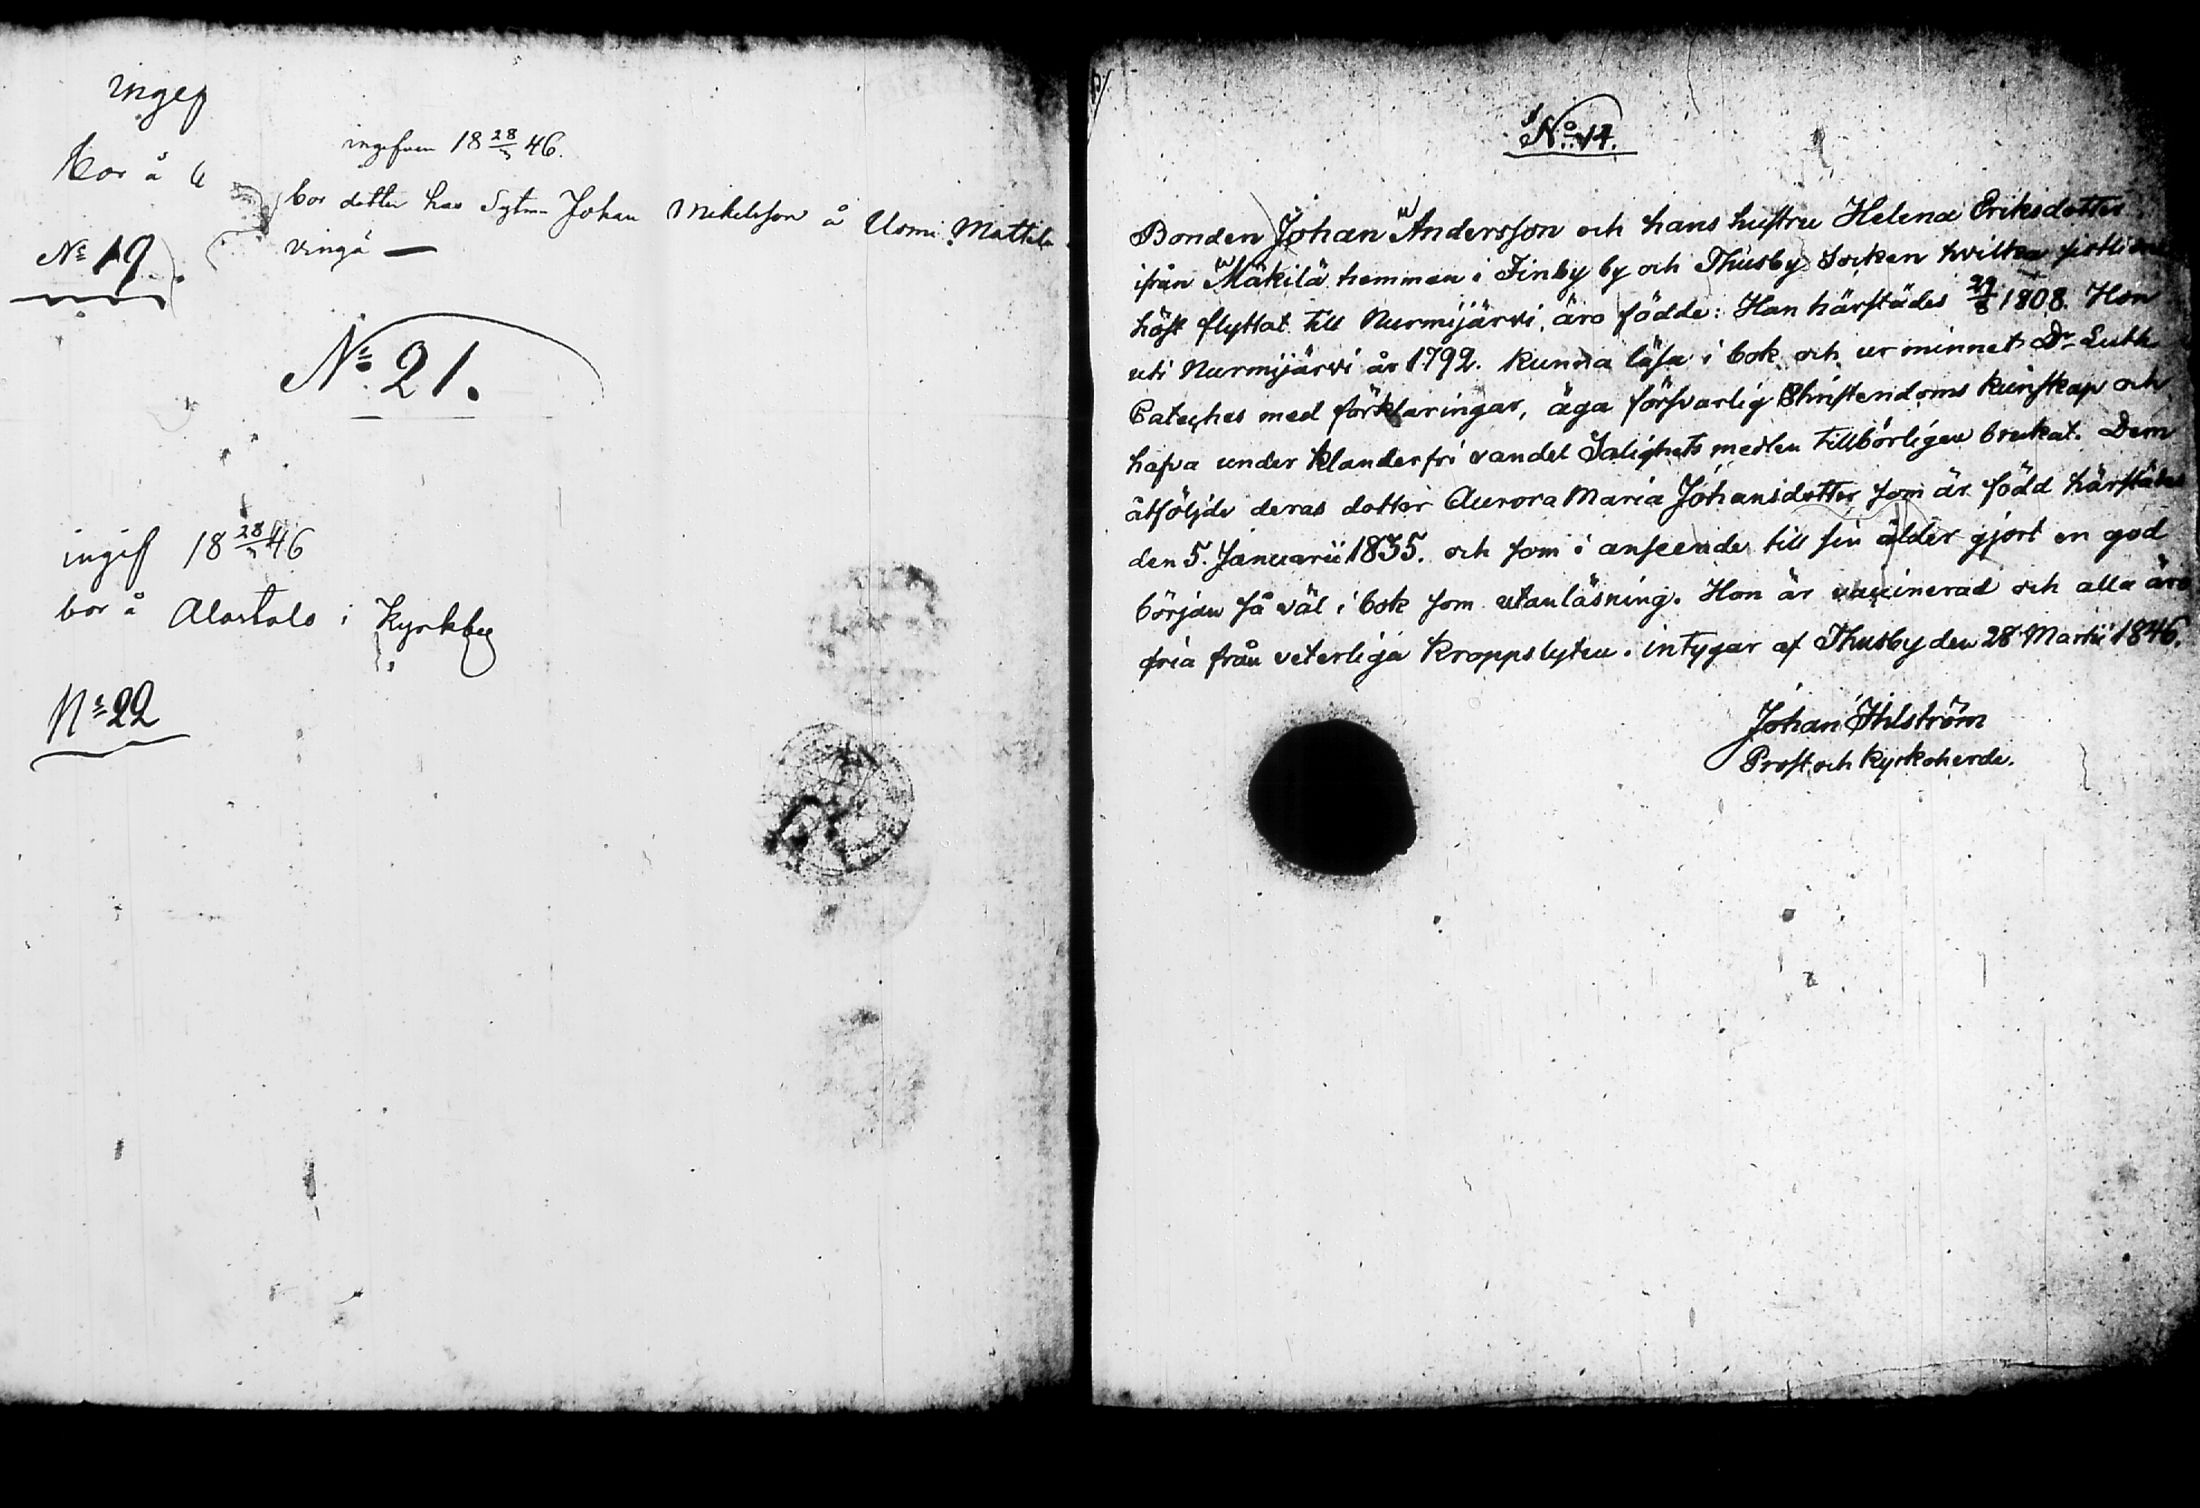 ingef
bor å
No 19
ingifven 18 28/3 46.
bor dotter hos Sytn Johan Mikelsson å Uomi Mattila
vingä —
No 21.
ingif 18 28/3 46
bor å Alastalo i Kyrkby
No 22
No 14.
Bonden Johan Andersson och hans hustru Helena Eriksdotter
ifrån Mäkilä hemman i Finby by och Thusby Socken hvilka sistliden
höst flyttat till Nurmijärvi, äro födde: Han härstädes 29/8 1808. Hon
uti Nurmijärvi år 1792. kunna läsa i bok och ur minnet Dr Luth.
Cateches med förklaringar, äga försvarlig Christendoms kunskap och
hafva under klanderfri vandel Salighets medlen tillbörligen brukat. Dem
åtföljde deras dotter Aurora Maria Johansdotter som är född härstädes
den 5. Januarii 1835. och som i anseende till sin ålder gjort en god
början så väl i bok som utanläsning. Hon är vaccinerad och alla äro
fria från veterliga kroppslyten. intygar af Thusby den 28 Martii 1846.
Johan Ihlström
Prost och kyrkoherde.